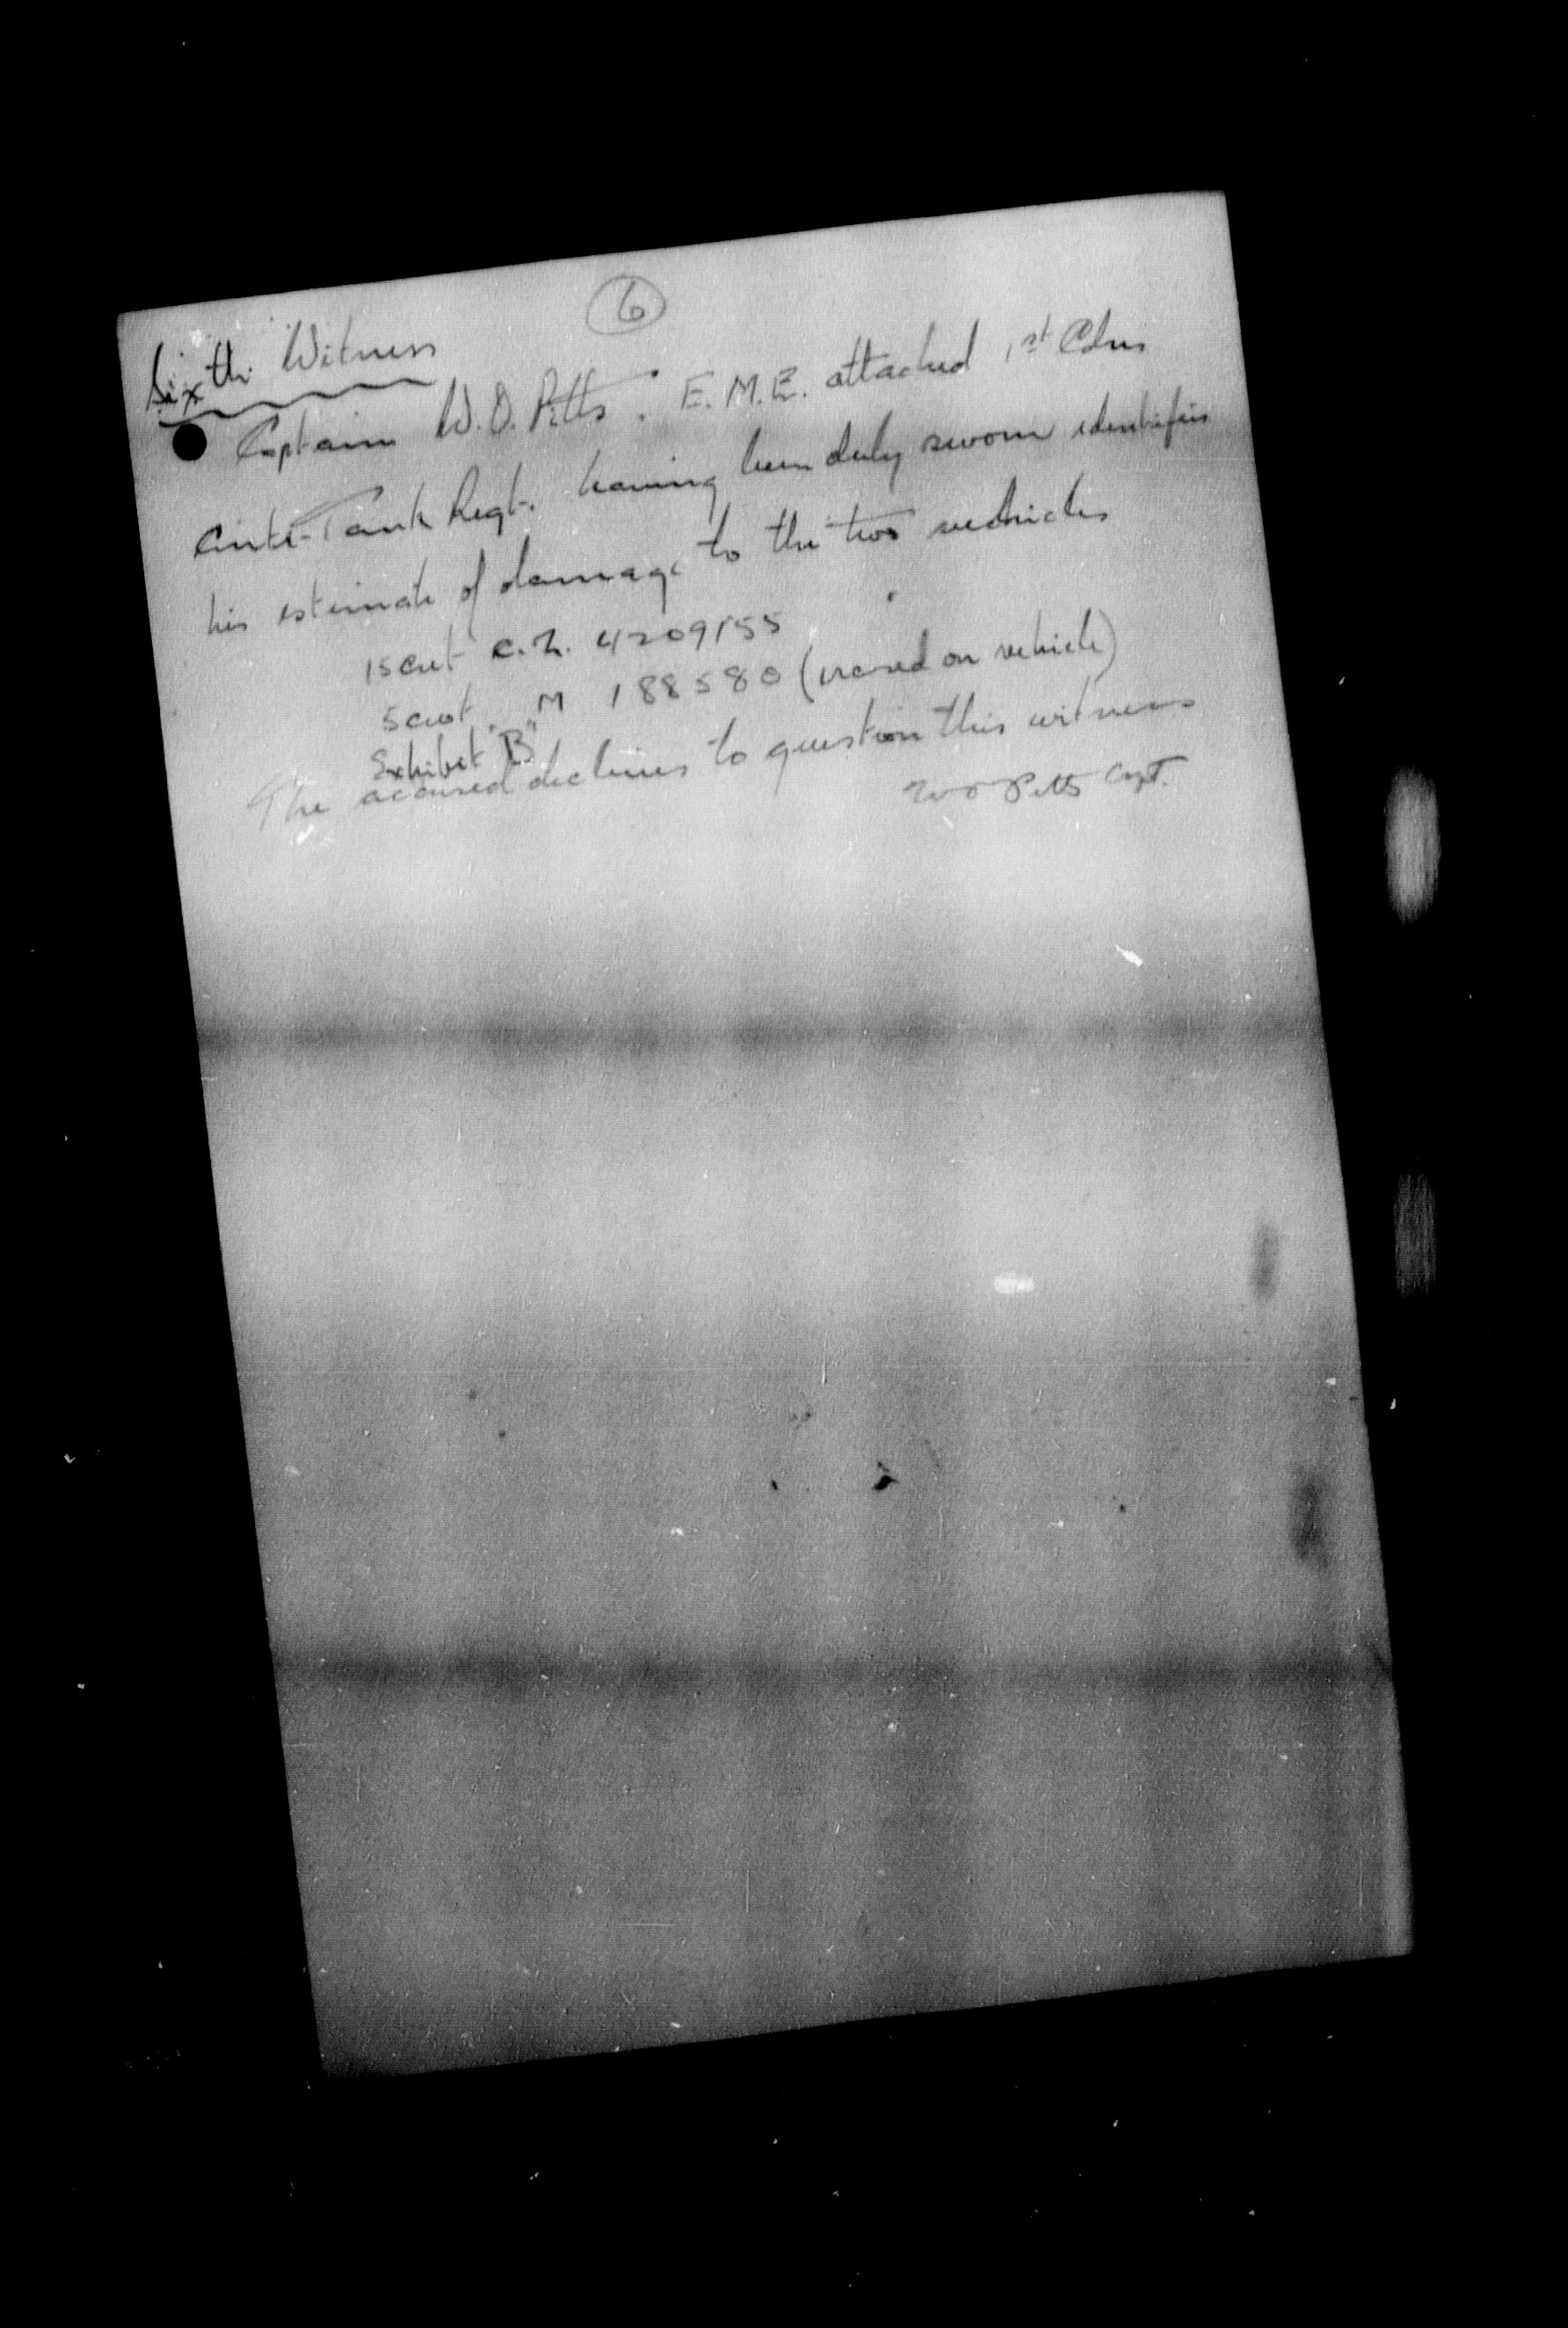 6
Sixth Witness
Captain W.O. Pitts. E.M.E. attached 1st Cdn
Anti-Tank Regt. having been duly sworn identifies
his estimate of damage to the two vehicles
15 cwt C.Z. 4209155
5 cwt M 188580 ( on vehicle)
Exhibit "B"
The accused declines to question this witness
W O Pitts Capt.